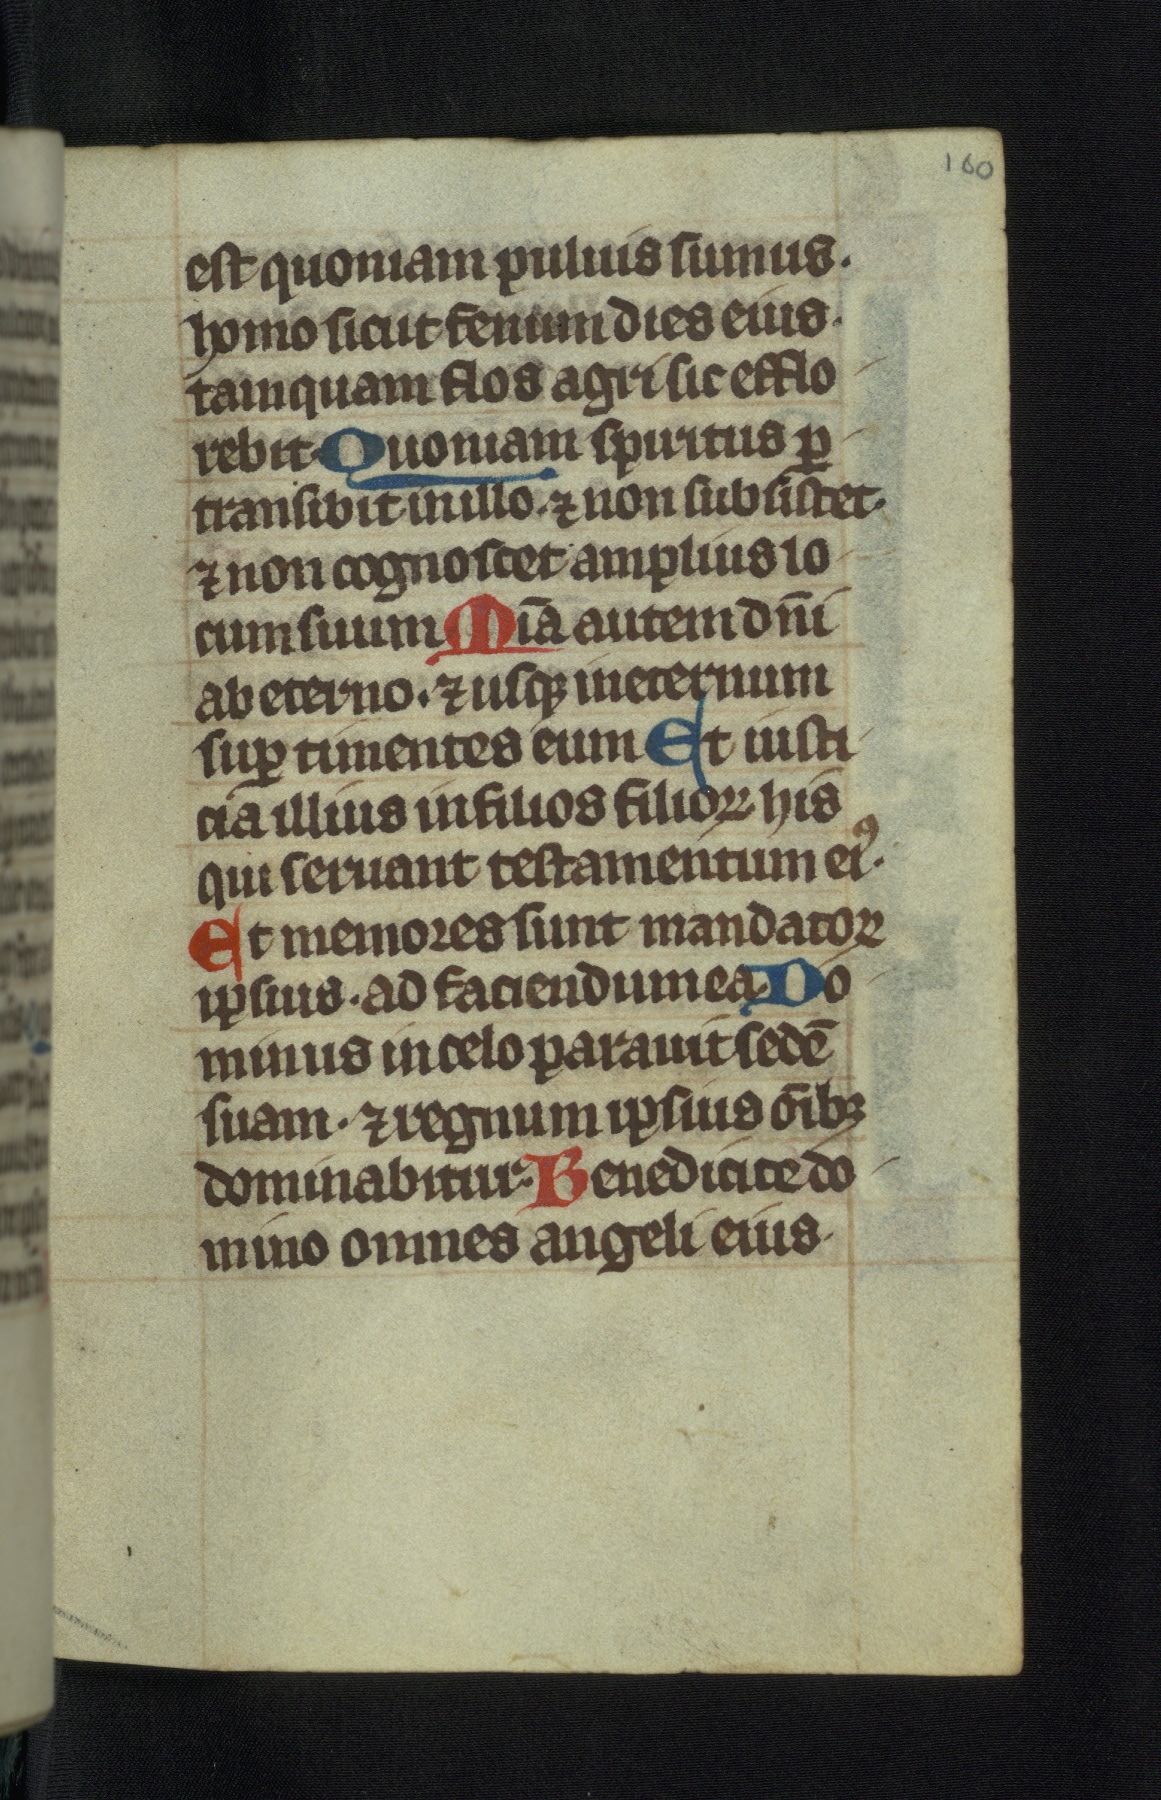 160
est quoniam puluis sumus.
homo sicut fenum dies eius.
tamquam flos agri sic efflo
rebit. Quoniam spiritus ꝑ
transibit in illo. ⁊ non subsistet.
⁊ non cognoscet amplius lo
cum suum Mīa autem dn̄i
ab eterno. ⁊ usqꝫ in eternum
suꝑ timentes eum Et iusti
cia illius in filios filioꝝ his
qui seruant testamentum eiꝰ.
Et memores sunt mandatoꝝ
ipsius. ad faciendum ea. Do
minus in celo parauit sedē
suam. ⁊ regnum ipsius om̄ibꝫ
dominabitur. Benedicite do
mino omnes angeli eius.